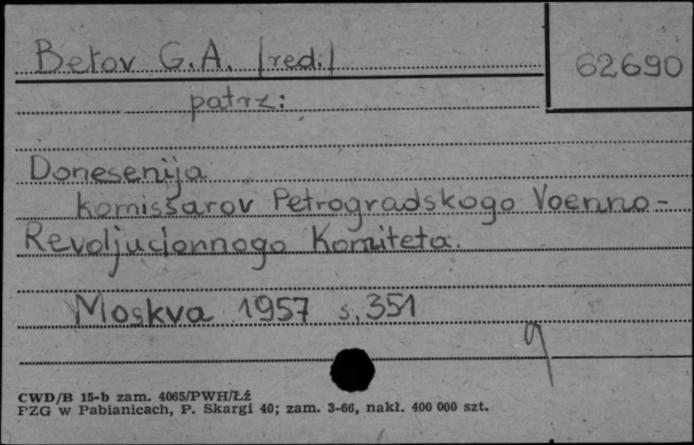 Bełov G.A. /red./
62690
patrz:
Donesenija
komissarov Petrogradskogo Voenno-
Revoljucionnogo Komiteta.
Moskva 1957 s. 351
CWD/B 15-b zam. 4065/PWH/Łź
PZG w Pabianicach, P. Skargi 40; zam. 3-66, nakł. 400 000 szt.